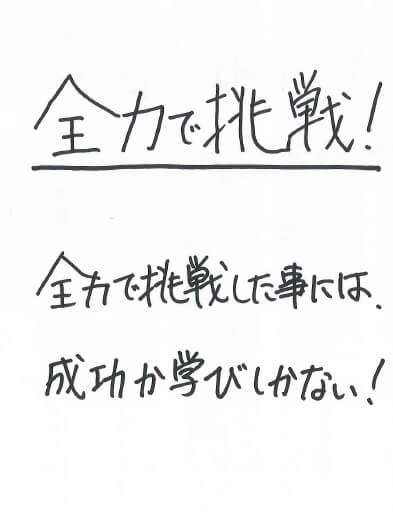 全力で挑戦!
全力で挑戦した事には、
成功か学びしかない!